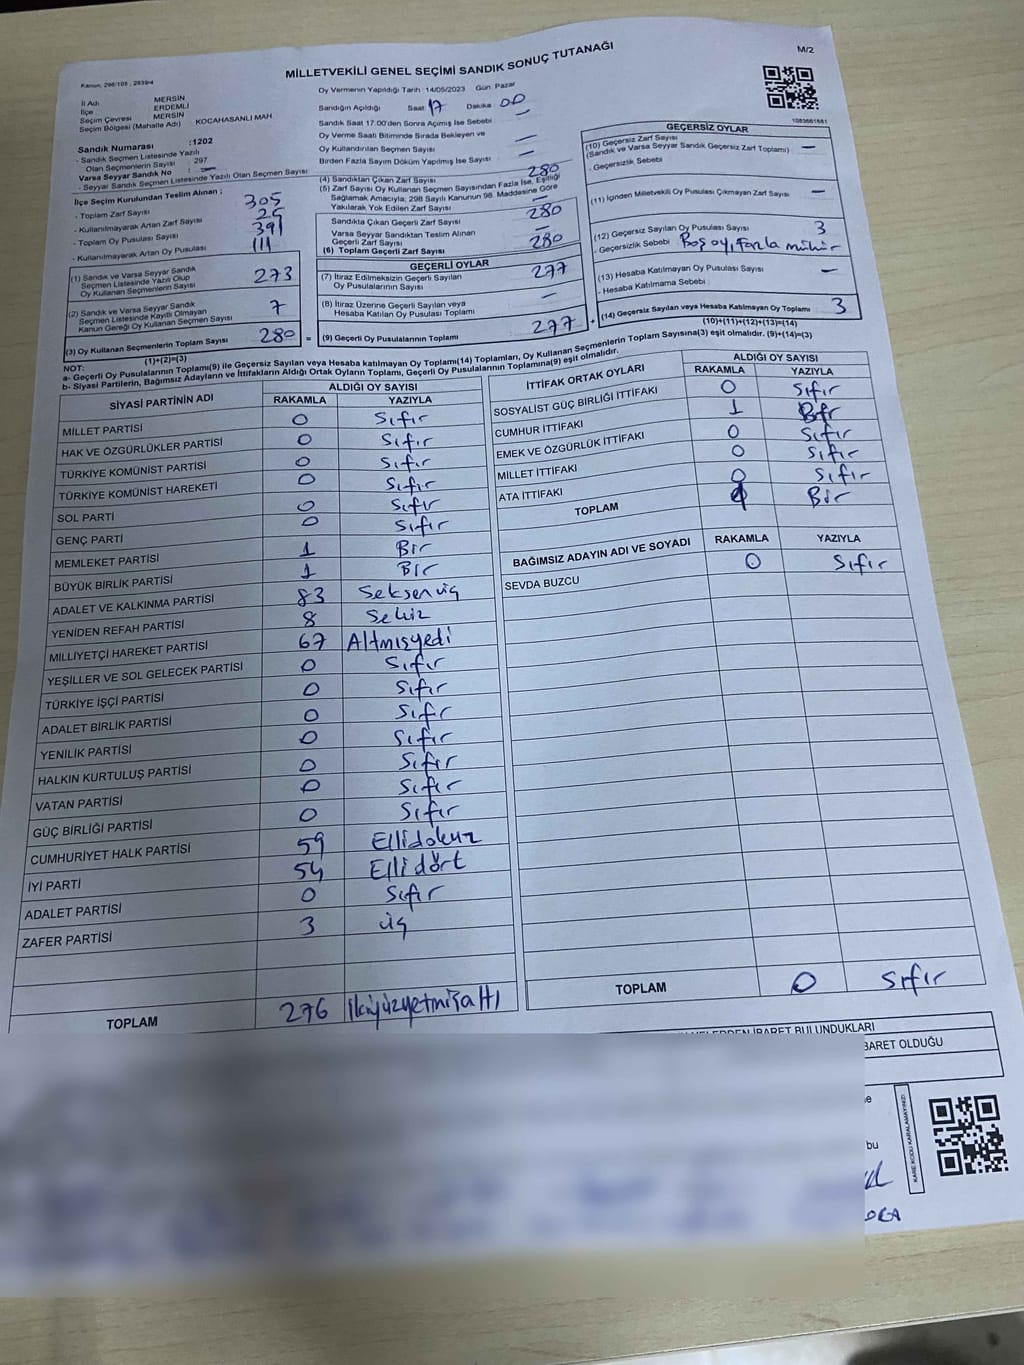 M/2
MİLLETVEKİLİ GENEL SEÇİMİ SANDIK SONUÇ TUTANAĞI
Kanun: 298/105 , 2839/4
İl Adı MERSİN
İlçe ERDEMLİ
Seçim Çevresi MERSİN
Seçim Bölgesi (Mahalle Adı) : KOCAHASANLI MAH
Sandık Numarası :1202
- Sandık Seçmen Listesinde Yazılı
Olan Seçmenlerin Sayısı : 297
Varsa Seyyar Sandık No : —
- Seyyar Sandık Seçmen Listesinde Yazılı Olan Seçmen Sayısı
İlçe Seçim Kurulundan Teslim Alınan ;
- Toplam Zarf Sayısı 305
- Kullanılmayarak Artan Zarf Sayısı 25
- Toplam Oy Pusulası Sayısı 391
- Kullanılmayarak Artan Oy Pusulası 111
(1) Sandık ve Varsa Seyyar Sandık
Seçmen Listesinde Yazılı Olup
Oy Kullanan Seçmenlerin Sayısı 273
(2) Sandık ve Varsa Seyyar Sandık
Seçmen Listesinde Kayıtlı Olmayan
Kanun Gereği Oy Kullanan Seçmen Sayısı 7
(3) Oy Kullanan Seçmenlerin Toplam Sayısı 280
(1)+(2)=(3)
Oy Vermenin Yapıldığı Tarih 14/05/2023 Gün Pazar
Sandığın Açıldığı Saat 17 Dakika 00
Sandık Saat 17:00'den Sonra Açımış İse Sebebi —
Oy Verme Saati Bitiminde Sırada Bekleyen ve
Oy Kullandırılan Seçmen Sayısı —
Birden Fazla Sayım Döküm Yapılmış İse Sayısı —
(4) Sandıktan Çıkan Zarf Sayısı 280
(5) Zarf Sayısı Oy Kullanan Seçmen Sayısından Fazla İse, Eşitliği
Sağlamak Amacıyla; 298 Sayılı Kanunun 98. Maddesine Göre
Yakılarak Yok Edilen Zarf Sayısı —
Sandıkta Çıkan Geçerli Zarf Sayısı 280
Varsa Seyyar Sandıktan Teslim Alınan
Geçerli Zarf Sayısı —
(6) Toplam Geçerli Zarf Sayısı 280
GEÇERLİ OYLAR
(7) İtiraz Edilmeksizin Geçerli Sayılan
Oy Pusulalarının Sayısı 277
(8) İtiraz Üzerine Geçerli Sayılan veya
Hesaba Katılan Oy Pusulası Toplamı —
= (9) Geçerli Oy Pusulalarının Toplamı 277 +
1083661681
GEÇERSİZ OYLAR
(10) Geçersiz Zarf Sayısı
(Sandık ve Varsa Seyyar Sandık Geçersiz Zarf Toplamı) —
- Geçersizlik Sebebi
(11) İçinden Milletvekili Oy Pusulası Çıkmayan Zarf Sayısı —
(12) Geçersiz Sayılan Oy Pusulası Sayısı 3
- Geçersizlik Sebebi Boş oy, fazla mühür
(13) Hesaba Katılmayan Oy Pusulası Sayısı —
- Hesaba Katılmama Sebebi
(14) Geçersiz Sayılan veya Hesaba Katılmayan Oy Toplamı 3
(10)+(11)+(12)+(13)=(14)
NOT:
a- Geçerli Oy Pusulalarının Toplamı(9) ile Geçersiz Sayılan veya Hesaba katılmayan Oy Toplamı(14) Toplamları, Oy Kullanan Seçmenlerin Toplam Sayısına(3) eşit olmalıdır. (9)+(14)=(3)
b- Siyasi Partilerin, Bağımsız Adayların ve İttifakların Aldığı Ortak Oyların Toplamı, Geçerli Oy Pusulalarının Toplamına(9) eşit olmalıdır.
SİYASİ PARTİNİN ADI ALDIĞI OY SAYISI
RAKAMLA YAZIYLA
MİLLET PARTİSİ 0 Sıfır
HAK VE ÖZGÜRLÜKLER PARTİSİ 0 Sıfır
TÜRKİYE KOMÜNİST PARTİSİ 0 Sıfır
TÜRKİYE KOMÜNİST HAREKETİ 0 Sıfır
SOL PARTİ 0 Sıfır
GENÇ PARTİ 0 Sıfır
MEMLEKET PARTİSİ 1 Bir
BÜYÜK BİRLİK PARTİSİ 1 Bir
ADALET VE KALKINMA PARTİSİ 83 Seksenüç
YENİDEN REFAH PARTİSİ 8 Sekiz
MİLLİYETÇİ HAREKET PARTİSİ 67 Altmışyedi
YEŞİLLER VE SOL GELECEK PARTİSİ 0 Sıfır
TÜRKİYE İŞÇİ PARTİSİ 0 Sıfır
ADALET BİRLİK PARTİSİ 0 Sıfır
YENİLİK PARTİSİ 0 Sıfır
HALKIN KURTULUŞ PARTİSİ 0 Sıfır
VATAN PARTİSİ 0 Sıfır
GÜÇ BİRLİĞİ PARTİSİ 0 Sıfır
CUMHURİYET HALK PARTİSİ 59 Ellidokuz
İYİ PARTİ 54 Ellidört
ADALET PARTİSİ 0 Sıfır
ZAFER PARTİSİ 3 üç
TOPLAM 276 İkiyüzyetmişaltı
İTTİFAK ORTAK OYLARI ALDIĞI OY SAYISI
RAKAMLA YAZIYLA
SOSYALİST GÜÇ BİRLİĞİ İTTİFAKI 0 Sıfır
CUMHUR İTTİFAKI 1 Bir
EMEK VE ÖZGÜRLÜK İTTİFAKI 0 Sıfır
MİLLET İTTİFAKI 0 Sıfır
ATA İTTİFAKI 0 Sıfır
TOPLAM 1 Bir
BAĞIMSIZ ADAYIN ADI VE SOYADI RAKAMLA YAZIYLA
SEVDA BUZCU 0 Sıfır
TOPLAM 0 Sıfır
İBARET BULUNDUKLARI
BARET OLDUĞU
bu
KARE KODU KARALAMAYINIZ!